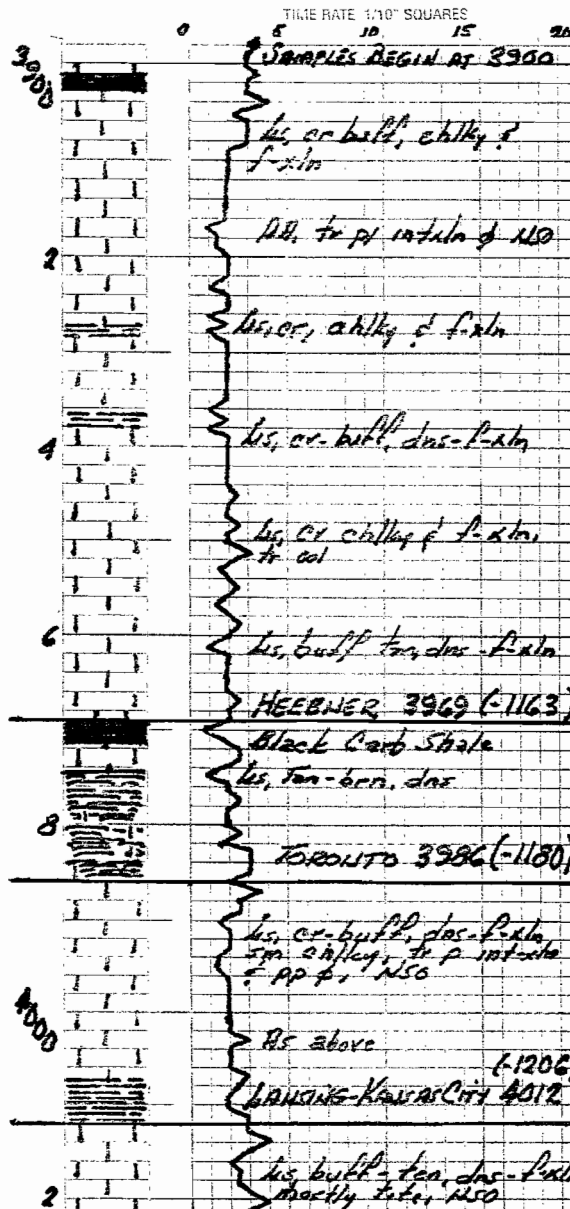 TIME RATE 1/10" SQUARES
0 5 10 15 20
SAMPLES BEGIN AT 3900
3900
Ls, cr buff, chlky &
f-xln
AA, tr p intxln ϕ NSO
2
Ls, cr, chlky & f-xln
4
Ls, cr-buff, dns-f-xln
Ls, cr chlky & f-xln,
tr ool
6
Ls, buff tan, dns-f-xln
HEEBNER 3969 (-1163)
Black Carb Shale
Ls, Tan-brn, dns
8
TORONTO 3986 (-1180)
Ls, cr-buff, dns-f-xln
sm chlky, tr p int-xln
& pp ϕ, NSO
4000
As above
(-1206
LANSING-KANSAS CITY 4012
Ls, buff-tan, dns-f-xln
mostly tite, NSO
2